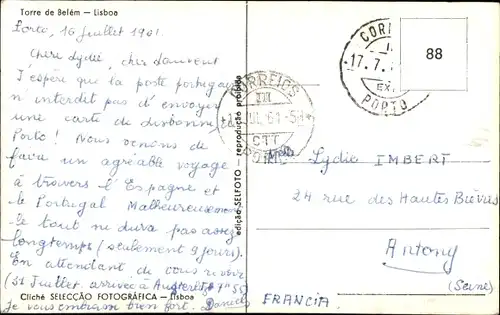 Torre de Belém — Lisboa
Porto, 16 juillet 1961.
Chère Lydie, cher Laurent
J'espère que la poste portugaise
n'interdit pas d'envoyer
une carte de Lisbonne de
Porto! Nous venons de
faire un agréable voyage
à travers l'Espagne et
le Portugal Malheureusement
le tout ne dura pas assez
longtemps (seulement 9 jours).
En attendant de vous revoir
(31 Juillet arrivée à Austerlitz 7h55)
je vous embrasse bien fort. Daniel
Cliché SELECÇÃO FOTOGRÁFICA — Lisboa
edição-SELFOTO reprodução proibida
CORREIOS
CTT
CORR
17.7.
PORTO
88
Lydie IMBERT
24 rue des Hautes Bièvres
Antony
(Seine)
FRANCIA